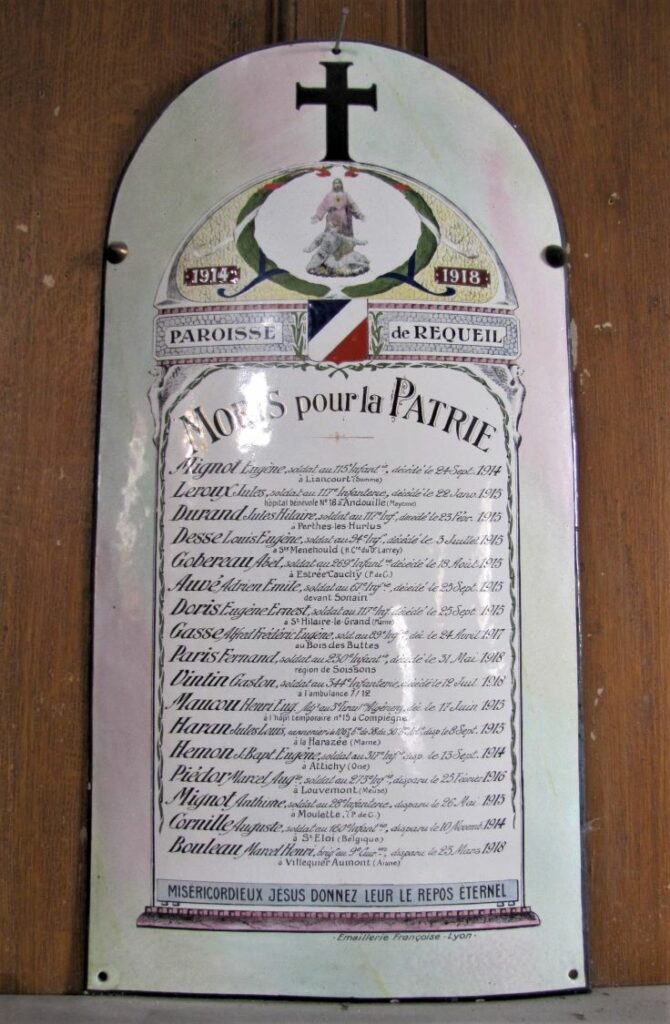 1914
1918
PAROISSE de REQUEIL
MORTS pour la PATRIE
Mignot Eugène, soldat au 115e Infantie, décédé le 24 Sept. 1914
à Liancourt (Somme)
Leroux Jules, soldat au 117e Infanterie, décédé le 22 Janv. 1915
hôpital bénévole N° 18 à Andouillé (Mayenne)
Durand Jules Hilaire, soldat au 117e Infie, décédé le 23 Févr. 1915
à Perthes-les-Hurlus
Desse Louis Eugène, soldat au 94e Infie, décédé le 3 Juillet 1915
à Ste Menehould
Gobereau Abel, soldat au 269e Infantie décédé le 18 Août 1915
à Estrée Cauchy (P. de C.)
Auvé Adrien Emile, soldat au 67e Infie, décédé le 25 Sept. 1915
devant Sonain
Doris Eugène Ernest, soldat au 117e Infie décédé le 25 Sept. 1915
à St Hilaire-le-Grand (Marne)
Gasse Alfred Frédéric Eugène, sold. au 89e Infie, déc. le 24 Avril 1917
au Bois des Buttes
Paris Fernand, soldat au 230e Infantie, décédé le 31 Mai 1918
région de Soissons
Vintin Gaston, soldat au 344e Infanterie, décédé le 12 Juil. 1918
à l'ambulance 7/12
Maucou Henri Eug. au 3e Algériens, déc. le 17 Juin 1915
à l'hôpl temporaire n° 15 à Compiègne
Haran Jules Louis, disp. le 8 Sept. 1915
à la Harazée (Marne)
Hemon J. Bapt. Eugène, soldat au 317e Infie disp. le 13 Sept. 1914
à Attichy (Oise)
Piédor Marcel Augte, soldat au 273e Infie, disparu le 25 Février 1916
à Louvemont (Meuse)
Mignot Anthime, soldat au 28e Infanterie, disparu le 26 Mai 1915
à Moulette, (P. de C.)
Cornille Auguste, soldat au 160e Infantie, disparu le 10 Novemb. 1914
à St Eloi (Belgique)
Bouleau Marcel Henri, brigr au 9e Cuirers, disparu le 23 Mars 1918
à Villequier Aumont (Aisne)
MISÉRICORDIEUX JÉSUS DONNEZ LEUR LE REPOS ÉTERNEL
- Emaillerie Françoise - Lyon -